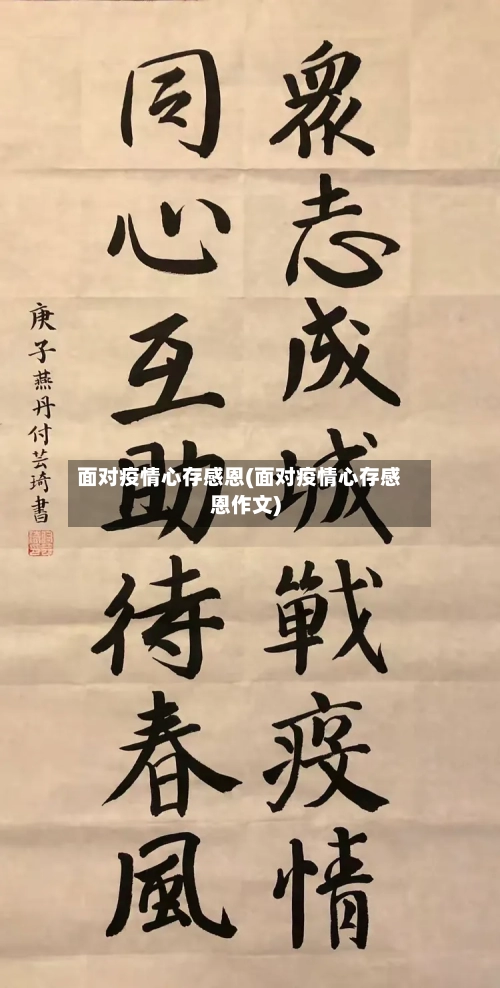 眾志成城戰疫情
同心互助待春風
庚子燕丹付芸琦書
面对疫情心存感恩(面对疫情心存感
恩作文)